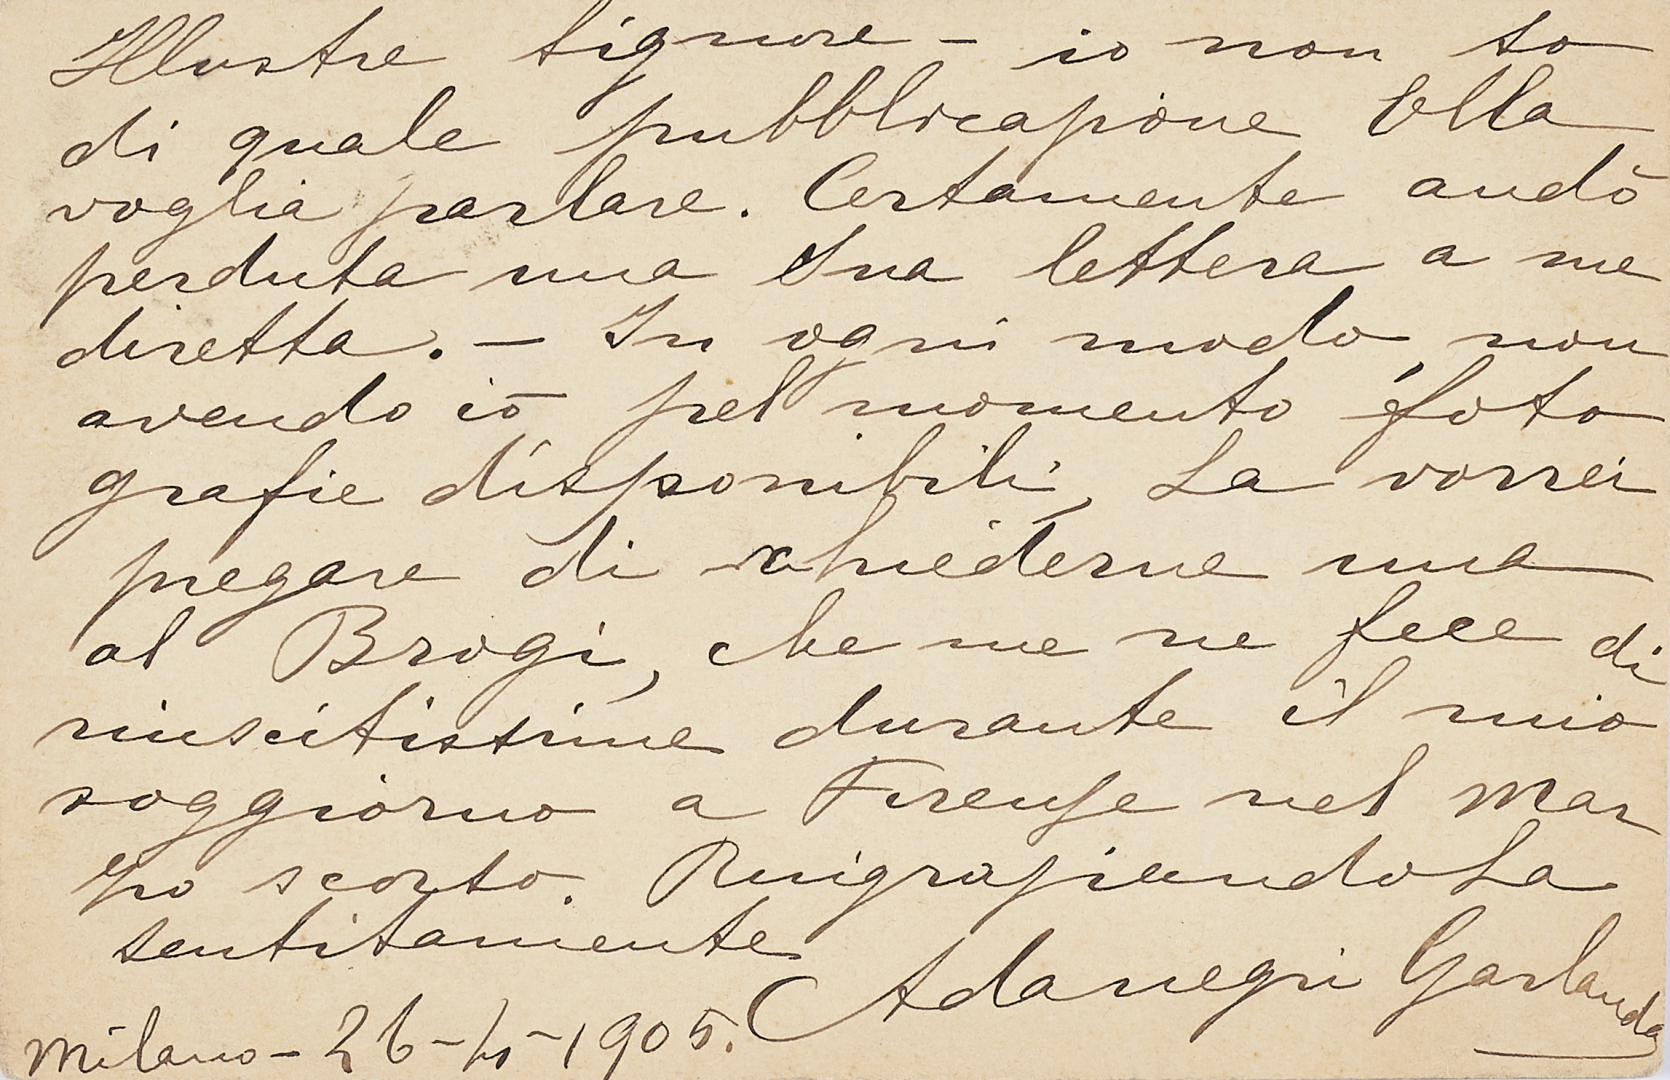 Illustre signore – io non so
di quale pubblicazione Ella
voglia parlare. Certamente andò
perduta una Sua lettera a me
diretta. – In ogni modo, non
avendo io pel momento foto
grafie disponibili, La vorrei
pregare di chiederne una
al Brogi, che me ne fece di
riuscitissime durante il mio
soggiorno a Firenze nel Mar
zo scorso. RingraziandoLa
sentitamente
Adanegri Garlanda
Milano – 26 – 1905.